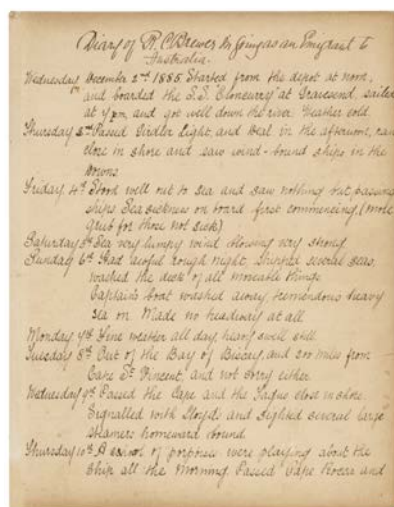 Diary of R. C. Brewer In Going as an Emigrant to
Australia.
Wednesday December 2nd 1885. Started from the depot at noon,
and boarded the S.S. "Cloncurry" at Gravesend, sailed
at 4 pm, and got well down the river. Weather cold.
Thursday 3rd Passed Girdler Light, and Deal in the afternoon, ran
close in shore and saw wind-bound ships in the
Downs.
Friday 4th Stood well out to sea and saw nothing but passing
ships Sea sickness on board first commencing, (more
grub for those not sick).
Saturday 5th Sea very lumpy wind blowing very strong.
Sunday 6th Had awful rough night, Shipped several seas,
washed the deck of all moveable things.
Captain's boat washed away, tremendous heavy
sea on. Made no headway at all.
Monday 7th Fine weather all day, heavy swell still.
Tuesday 8th Out of the Bay of Biscay, and 200 miles from
Cape St Vincent, and not sorry either.
Wednesday 9th Passed the Cape and the Tagus close in shore.
Signalled with Lloyds and sighted several large
steamers homeward bound.
Thursday 10th A school of porpoises were playing about the
ship all the morning Passed Cape and